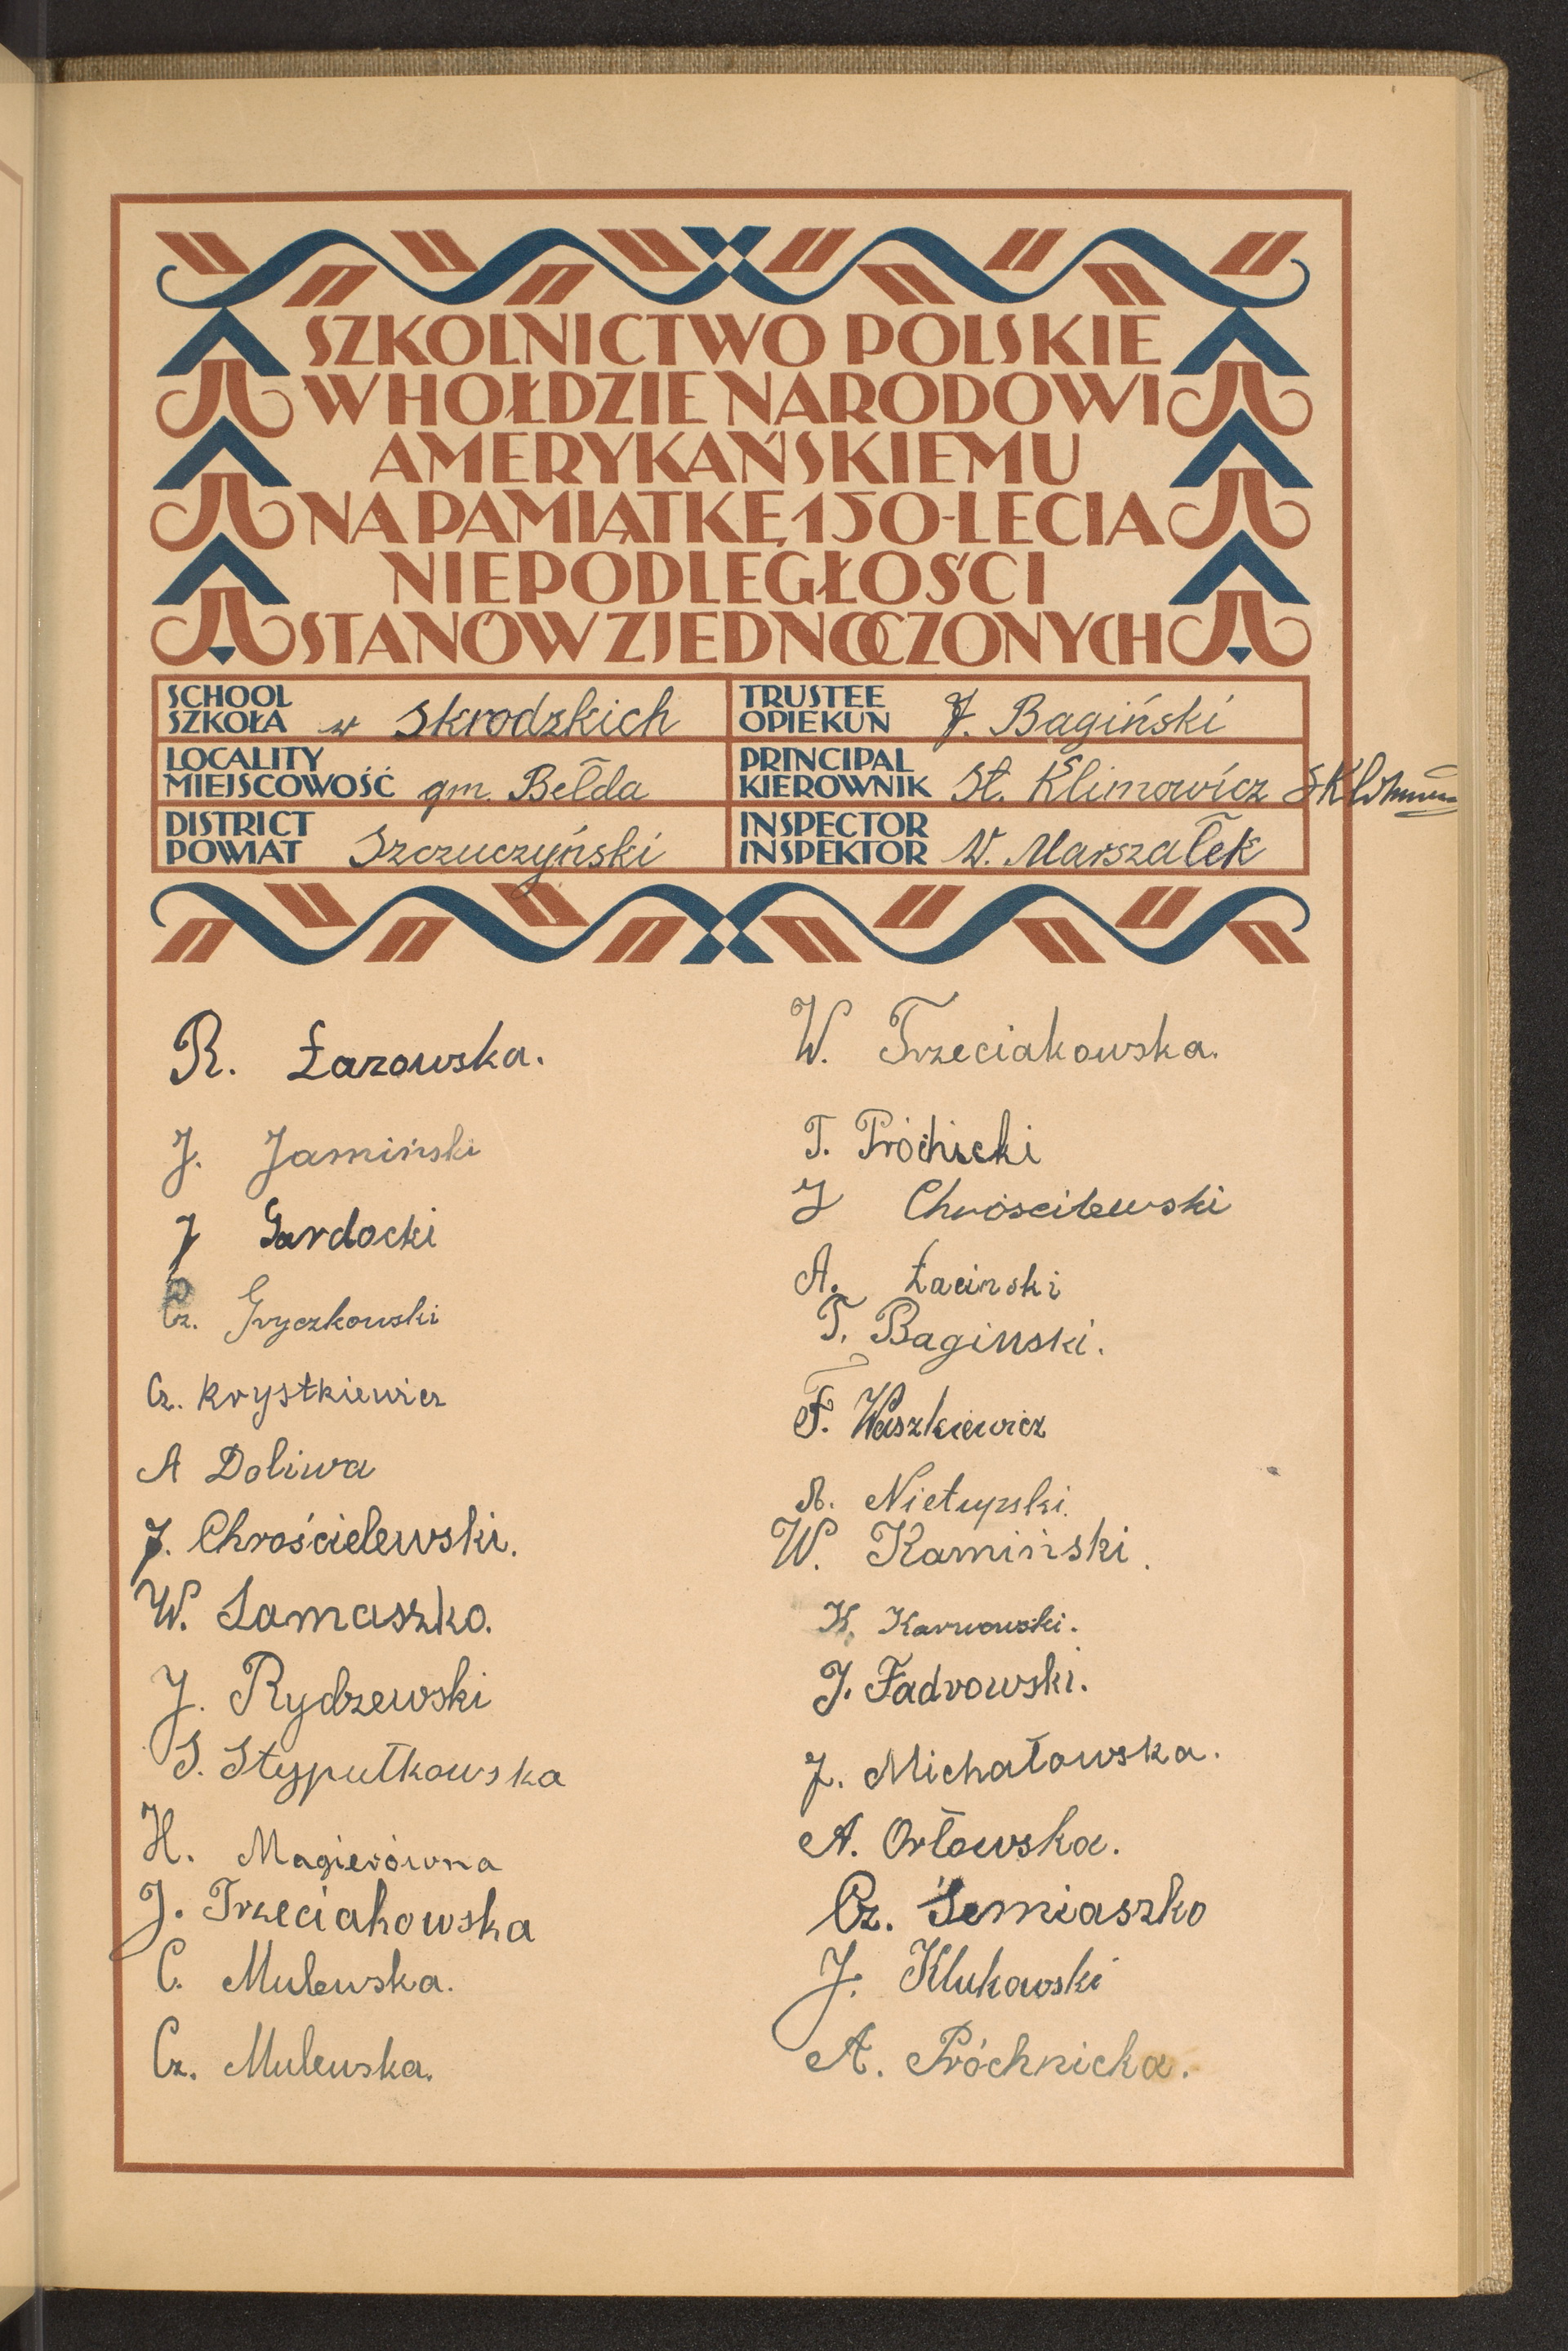 SZKOLNICTWO POLSKIE
W HOŁDZIE NARODOWI
AMERYKAŃSKIEMU
NA PAMIĄTKĘ 150-LECIA
NIEPODLEGŁOŚCI
STANÓW ZJEDNOCZONYCH
SCHOOL
SZKOŁA w Skrodzkich
LOCALITY
MIEJSCOWOŚĆ gm. Bełda
DISTRICT
POWIAT Szczuczyński
TRUSTEE
OPIEKUN J. Bagiński
PRINCIPAL
KIEROWNIK St. Klimowicz
INSPECTOR
INSPEKTOR W. Marszałek
R. Łazowska.
J. Jamiński
J Gardocki
Cz. Gryczkowski
Cz. Krystkiewicz
A Doliwa
J. Chrościelewski.
W. Samaszko.
J. Rydzewski
S. Stypułkowska
H. Magierówna
J. Trzeciakowska
C. Mulewska.
Cz. Mulewska.
W. Trzeciakowska.
T. Próchicki
J Chróscilewski
A. Łacinski
T. Baginski.
F. Waszkiewicz
A. Nietupski.
W. Kamiński.
K. Karwowski.
J. Fadrowski.
J. Michałowska.
A. Orłowska.
Cz. Siemiaszko
J. Klukowski
A. Próchnicka.